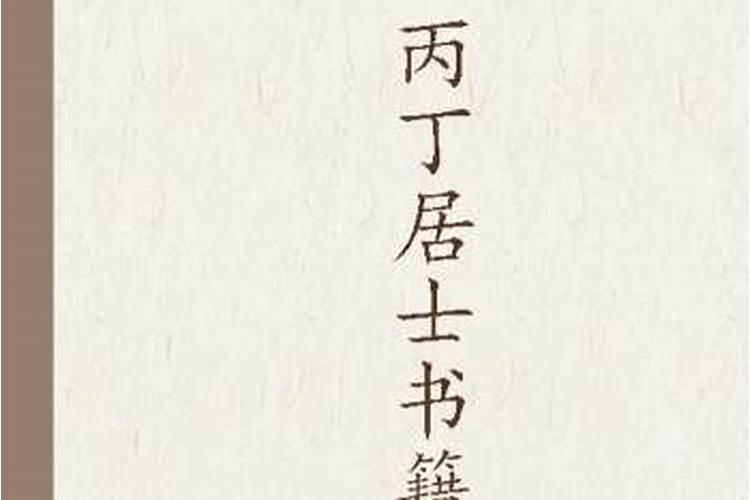 丙丁居士书籍